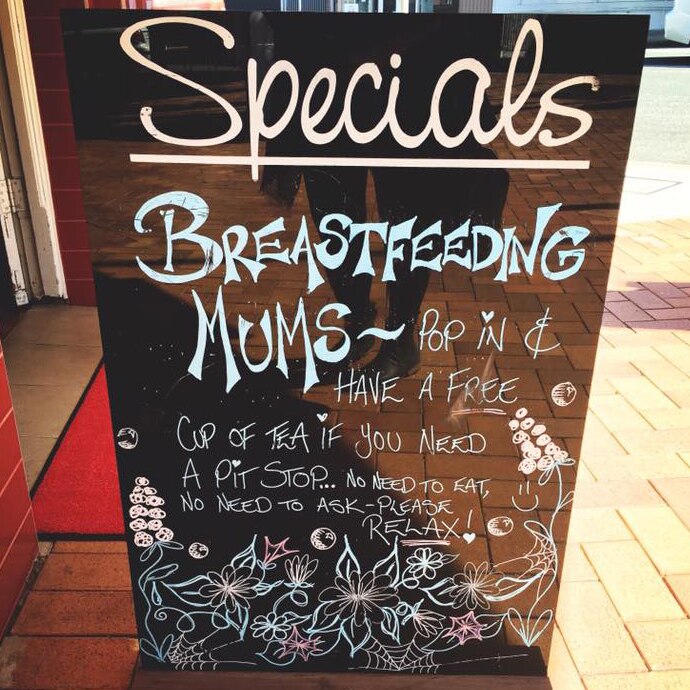 Specials
BREASTFEEDING
MUMS~ POP IN &
HAVE A FREE
CUP OF TEA IF YOU NEED
A PIT STOP... NO NEED TO EAT,
NO NEED TO ASK-PLEASE
RELAX!